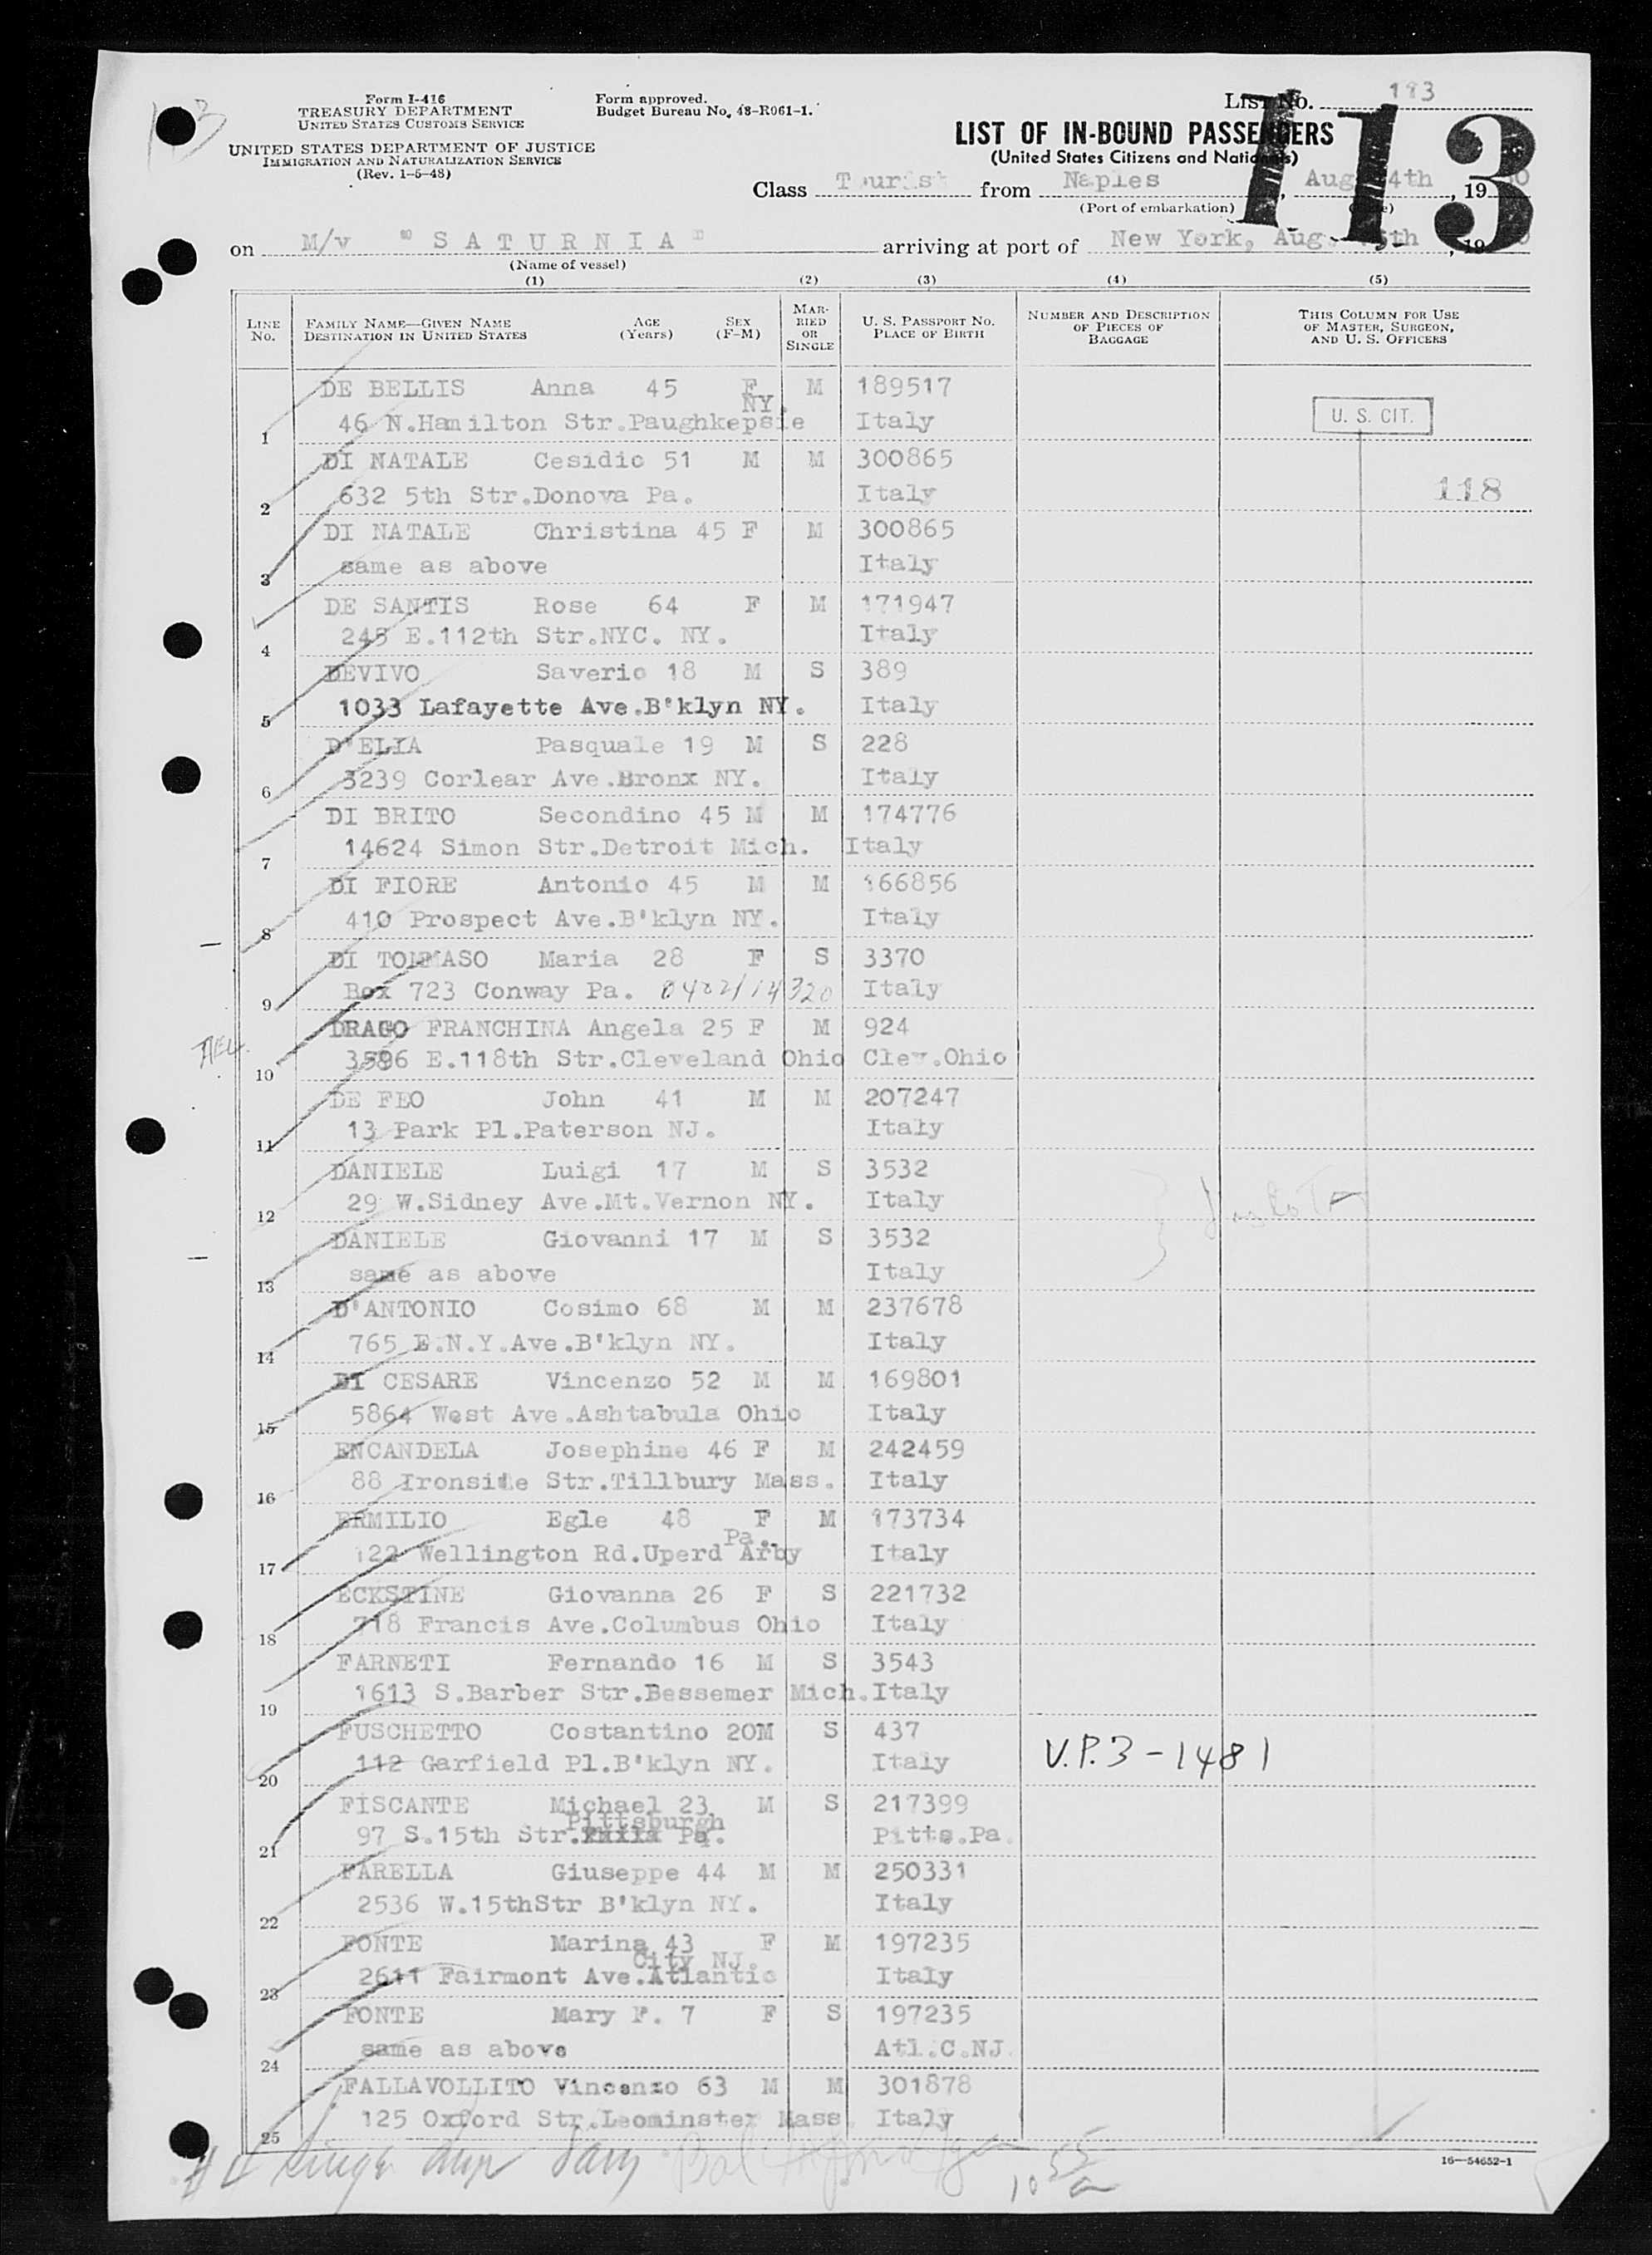 Form I-416
TREASURY DEPARTMENT
UNITED STATES CUSTOMS SERVICE
UNITED STATES DEPARTMENT OF JUSTICE
IMMIGRATION AND NATURALIZATION SERVICE
(Rev. 1-5-48)
Form approved.
Budget Bureau No. 48-R061-1.
List No. 113
113
LIST OF IN-BOUND PASSENGERS
(United States Citizens and Nationals)
Class Tourist from Naples, Aug 4th, 19
(Port of embarkation)
on M/v "SATURNIA" arriving at port of New York, Aug. 19
(Name of vessel)
(1) (2) (3) (4) (5)
LINE No. FAMILY NAME—GIVEN NAME DESTINATION IN UNITED STATES AGE (Years) SEX (F-M) MARRIED OR SINGLE U. S. PASSPORT NO. PLACE OF BIRTH NUMBER AND DESCRIPTION OF PIECES OF BAGGAGE THIS COLUMN FOR USE OF MASTER, SURGEON, AND U. S. OFFICERS
DE BELLIS Anna 45 F M 189517
NY.
1 46 N.Hamilton Str.Paughkepsie Italy U. S. CIT.
DI NATALE Cesidio 51 M M 300865
2 632 5th Str.Donova Pa. Italy 118
DI NATALE Christina 45 F M 300865
3 same as above Italy
DE SANTIS Rose 64 F M 171947
4 245 E.112th Str.NYC. NY. Italy
DEVIVO Saverio 18 M S 389
5 1033 Lafayette Ave.B'klyn NY. Italy
D'ELIA Pasquale 19 M S 228
6 3239 Corlear Ave.Bronx NY. Italy
DI BRITO Secondino 45 M M 174776
7 14624 Simon Str.Detroit Mich. Italy
DI FIORE Antonio 45 M M 166856
8 410 Prospect Ave.B'klyn NY. Italy
DI TOMMASO Maria 28 F S 3370
9 Box 723 Conway Pa. Italy
DRAGO FRANCHINA Angela 25 F M 924
10 3596 E.118th Str.Cleveland Ohio Clev.Ohio
DE FEO John 41 M M 207247
11 13 Park Pl.Paterson NJ. Italy
DANIELE Luigi 17 M S 3532
12 29 W.Sidney Ave.Mt.Vernon NY. Italy
DANIELE Giovanni 17 M S 3532
13 same as above Italy
D'ANTONIO Cosimo 68 M M 237678
14 765 E.N.Y.Ave.B'klyn NY. Italy
DI CESARE Vincenzo 52 M M 169801
15 5864 West Ave.Ashtabula Ohio Italy
ENCANDELA Josephine 46 F M 242459
16 88 Ironside Str.Tillbury Mass. Italy
ERMILIO Egle 48 F M 173734
Pa.
17 122 Wellington Rd.Uperd Arby Italy
ECKSTINE Giovanna 26 F S 221732
18 718 Francis Ave.Columbus Ohio Italy
FARNETI Fernando 16 M S 3543
19 1613 S.Barber Str.Bessemer Mich. Italy
FUSCHETTO Costantino 20M S 437
20 112 Garfield Pl.B'klyn NY. Italy V.P.3-1481
FISCANTE Michael 23 M S 217399
Pittsburgh
21 97 S.15th Str. Pa. Pitts.Pa.
FARELLA Giuseppe 44 M M 250331
22 2536 W.15thStr B'klyn NY. Italy
FONTE Marina 43 F M 197235
City NJ.
23 2611 Fairmont Ave.Atlantic Italy
FONTE Mary F. 7 F S 197235
24 same as above Atl.C.NJ.
FALLAVOLLITO Vincenzo 63 M M 301878
25 125 Oxford Str.Leominster Mass Italy
16—54652-1